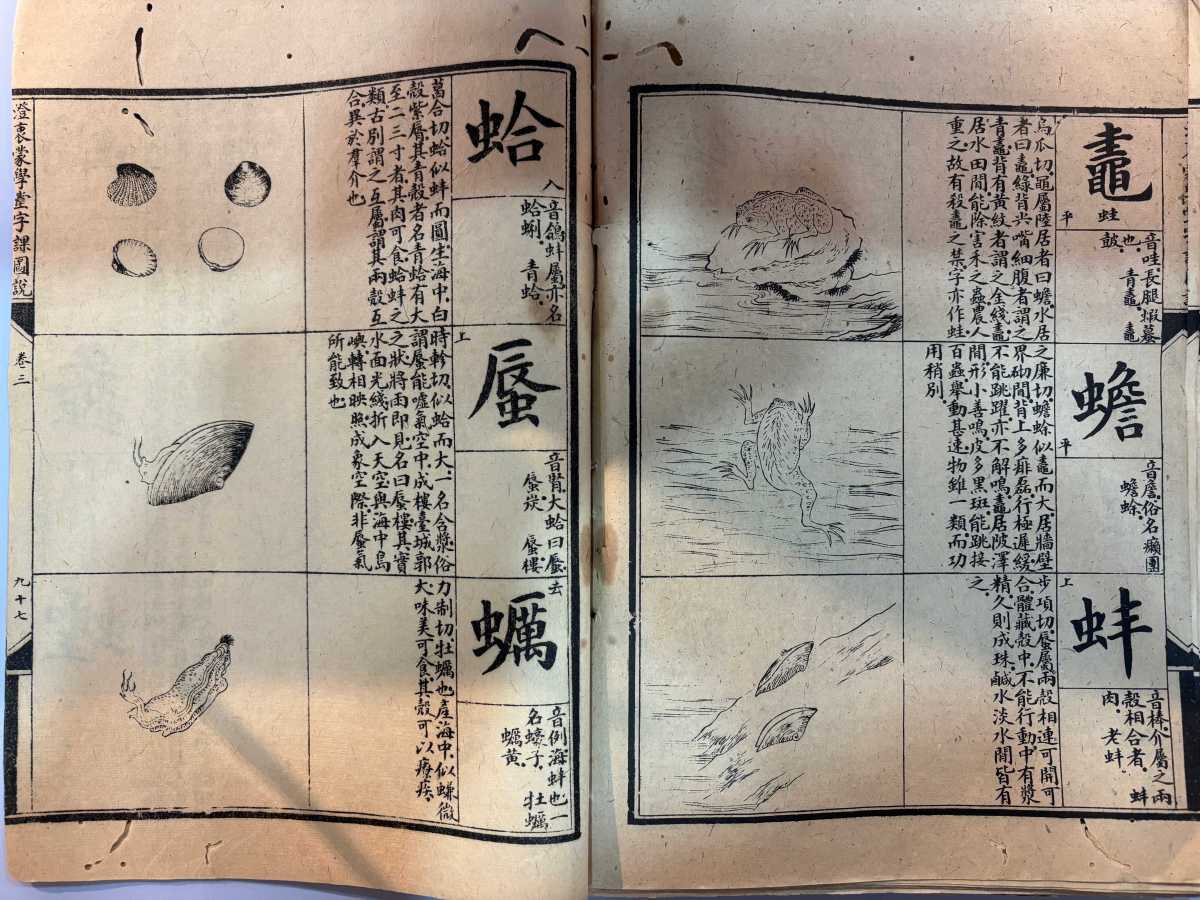 鼃
平
蛙
音哇長腿蝦蟇
也。青鼃。鼃
皷。
烏瓜切。黽屬陸居者曰蟾。水居
者曰鼃。綠背尖嘴細腹者謂之
青鼃。背有黃紋者謂之金綫鼃。
居水田間。能除害禾之蟲。農人
重之。故有殺鼃之禁。字亦作蛙。
蟾
平
音詹。俗名癩團
蟾蜍。
之廉切。蟾蜍似鼃而大。居牆壁
界砌間。背上多痱磊。行極遲緩
不能跳躍。亦不解鳴。鼃居陂澤
間。形小善鳴。皮多黑斑。能跳接
百蟲。舉動甚速。物雖一類而功
用稍別。
蚌
上
音棒。介屬之兩
殼相合者。蚌
肉。老蚌
步項切。蜃屬。兩殼相連可開可
合。體藏殼中。不能行動。中有漿
精。久則成珠。鹹水淡水間皆有
之。
蛤
入
音鴿。蚌屬。亦名
蛤蜊。青蛤。
葛合切。蛤似蚌而圓。生海中。白
殼紫脣。其青殼者名青蛤。有大
至二三寸者。其肉可食。蛤蚌之
類。古別謂之互屬。謂其兩殼互
合。異於羣介也。
蜃
上
音腎。大蛤曰蜃。
蜃炭 蜃樓
時軫切。似蛤而大。一名含漿。俗
謂蜃能噓氣空中。成樓臺城郭
之狀。將雨即見。名曰蜃樓。其實
水面光綫折入天空。與海中島
嶼轉相映照。成象空際。非蜃氣
所能致也。
蠣
去
音例。海蚌也。一
名蠔子。牡蠣
蠣黃。
力制切。牡蠣也。產海中。似蠊微
大。味美可食。其殼可以療疾。
澄衷蒙學堂字課圖說
卷三
九十七